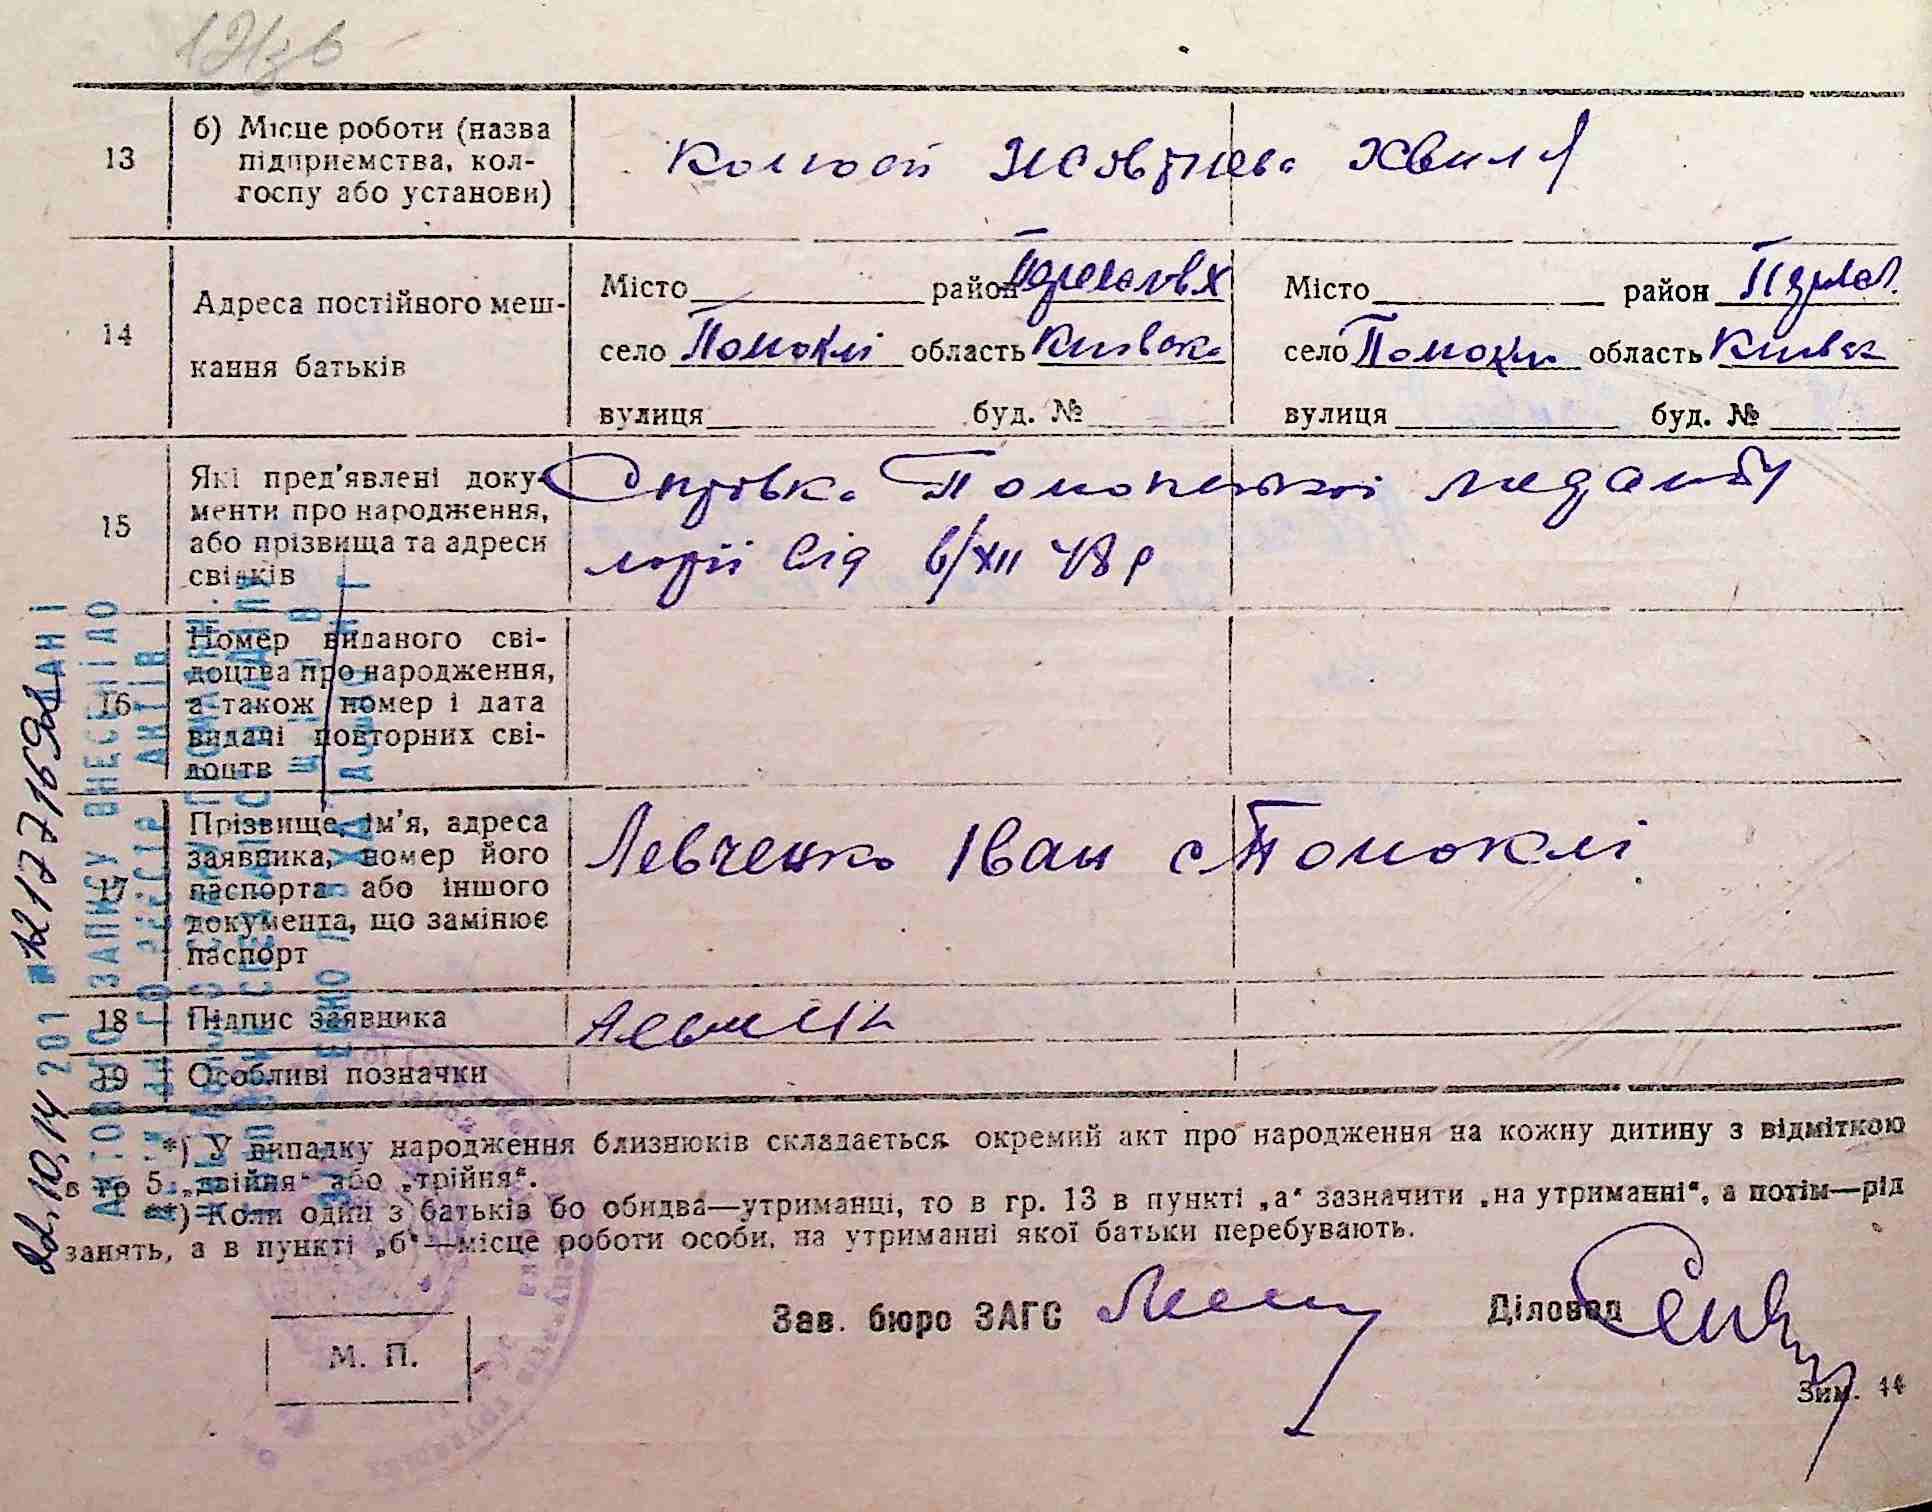 13 б) Місце роботи (назва
підприємства, кол-
госпу або установи)
Колгосп Жовтнева Хвиля
14 Адреса постійного меш-
кання батьків
Місто район
село Помоклі область Київска
вулиця буд. №
Місто район Переясл.
село Помоклі область Київск
вулиця буд. №
15 Які пред'явлені доку-
менти про народження,
або прізвища та адреси
свідків
Справка Помокельскої медамбу
лорії Від 6/XII 48 р
16 Номер виданого сві-
доцтва про народження,
а також номер і дата
видачі повторних сві-
доцтв
17 Прізвище, ім'я, адреса
заявника, номер його
паспорта або іншого
документа, що замінює
паспорт
Левченко Іван с Помоклі
18 Підпис заявника
19 Особливі позначки
*) У випадку народження близнюків складається окремий акт про народження на кожну дитину з відміткою
в гр 5: „двійня“ або „трійня“.
**) Коли один з батьків бо обидва—утриманці, то в гр. 13 в пункті „а“ зазначити „на утриманні“, а потім—рід
занять, а в пункті „б“—місце роботи особи, на утриманні якої батьки перебувають.
Зав. бюро ЗАГС
Діловод
М. П.
Зим. 44
АКТОВОГО ЗАПИСУ ВНЕСЕНІ ДО